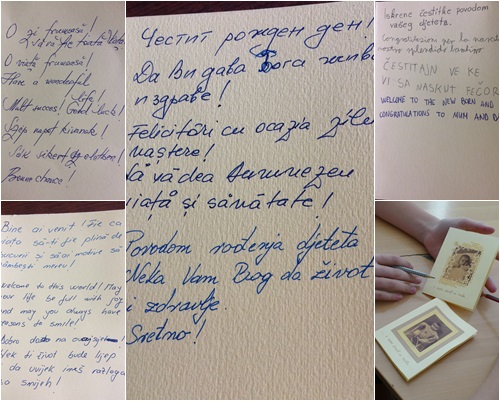 O zi frumoasă!
O viață frumoasă!
Have a wonderful life!
Mult succes! Good luck!
Szép napot kívánok!
Sok sikert
Bonne chance!
Bine ai venit! Fie ca
viața să-ți fie plină de
bucurii și să ai motive să
zâmbești mereu!
Welcome to this world! May
your life be full with joy
and may you always have
reasons to smile!
Dobro došao na ovaj svijet!
Nek ti život bude lijep
da uvijek imaš razloga
za smijeh!
Честит рожден ден!
Да Ви дава Бог
и здраве!
Felicitări cu ocazia zilei
naștere!
Să vă dea Dumnezeu
viață și sănătate!
Povodom rođenja djeteta
Neka Vam Bog da život
i zdravlje.
Sretno!
Iskrene čestitke povodom
vašeg djeteta.
Congratulazioni per la
vostro splendido bambino
ČESTITAJN VE KE
VI SA NASKUT FEČOR
WELCOME TO THE NEW BORN AND
CONGRATULATIONS TO MUM AND D